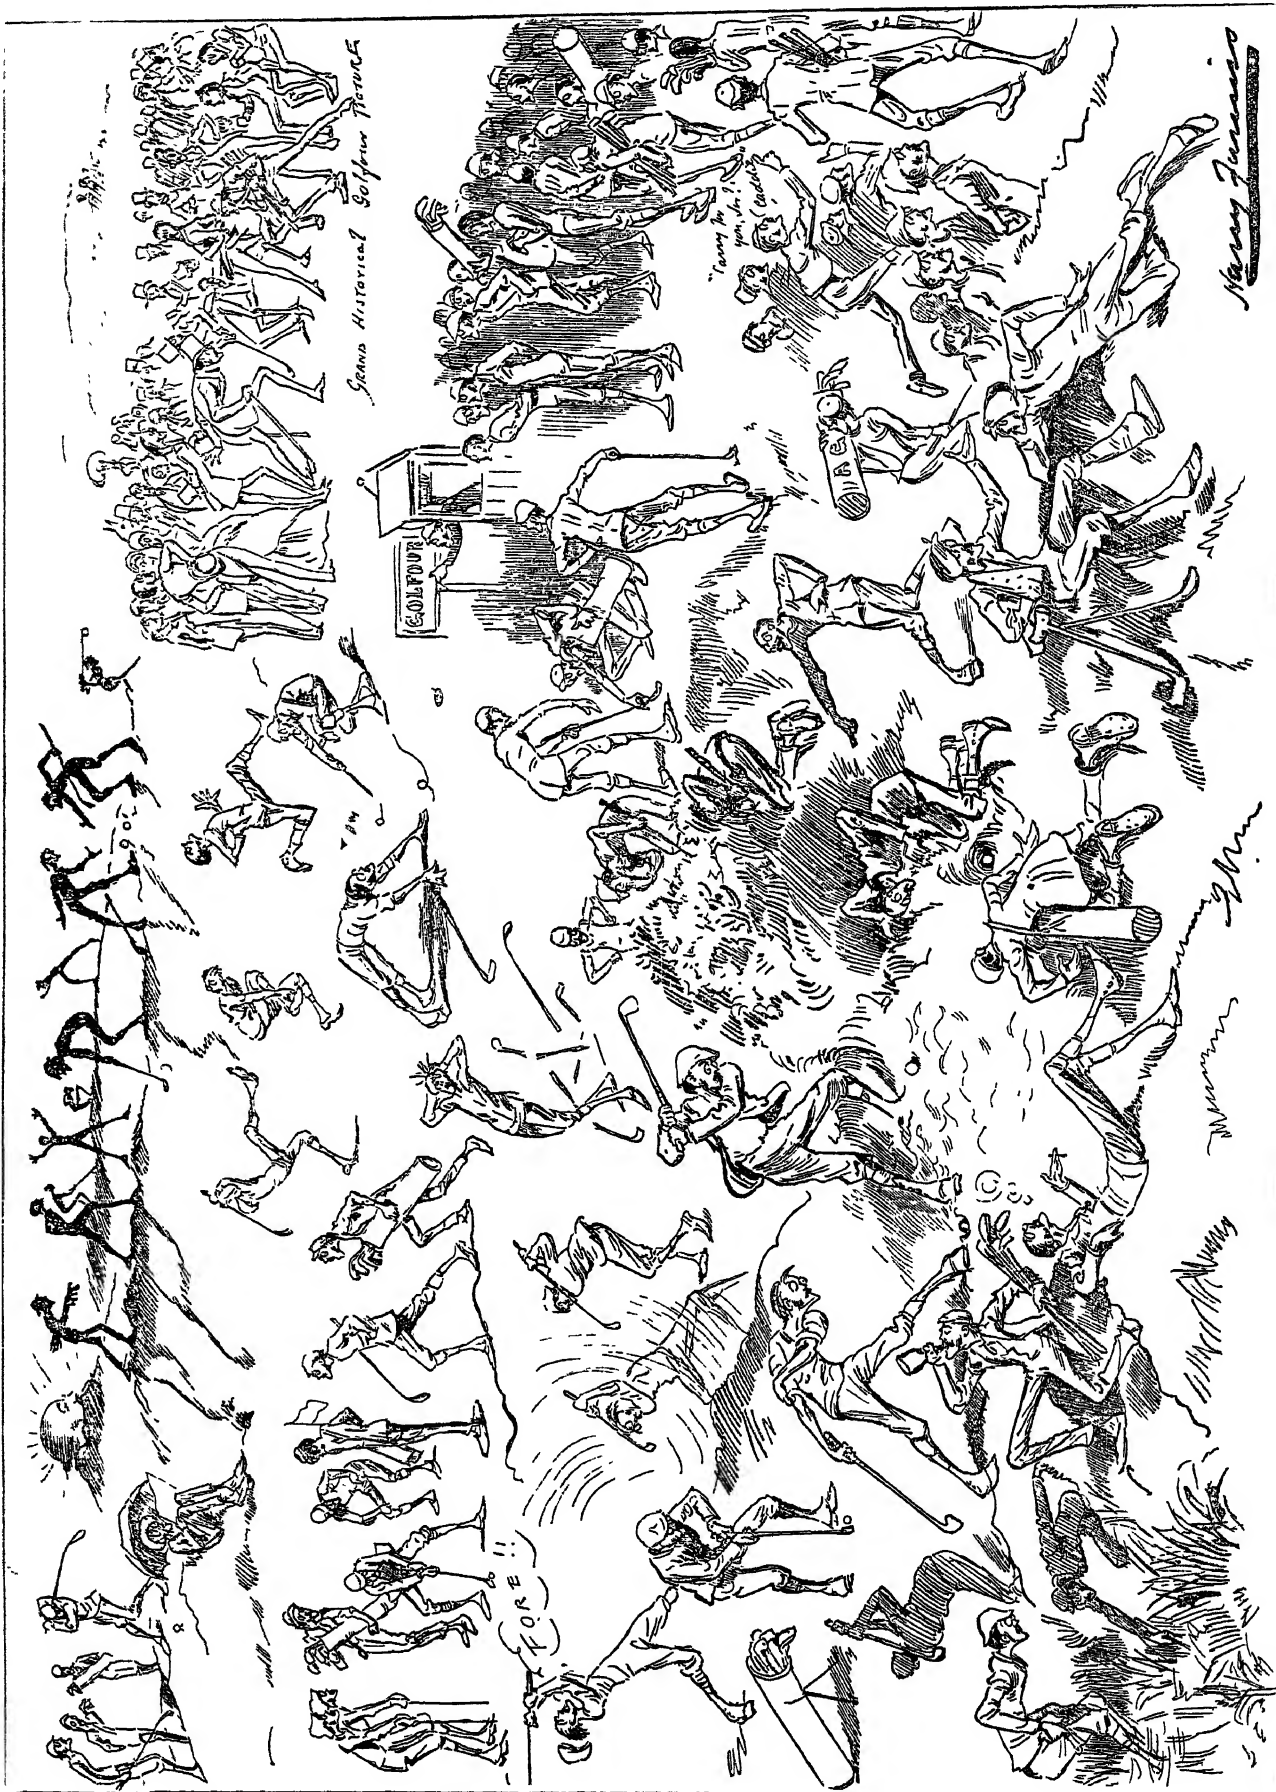 GRAND HISTORICAL Golfour PICTURE
GOLFOUR
FORE!!
"Carry for
you, Sir?"
Caddie
Harry Furniss